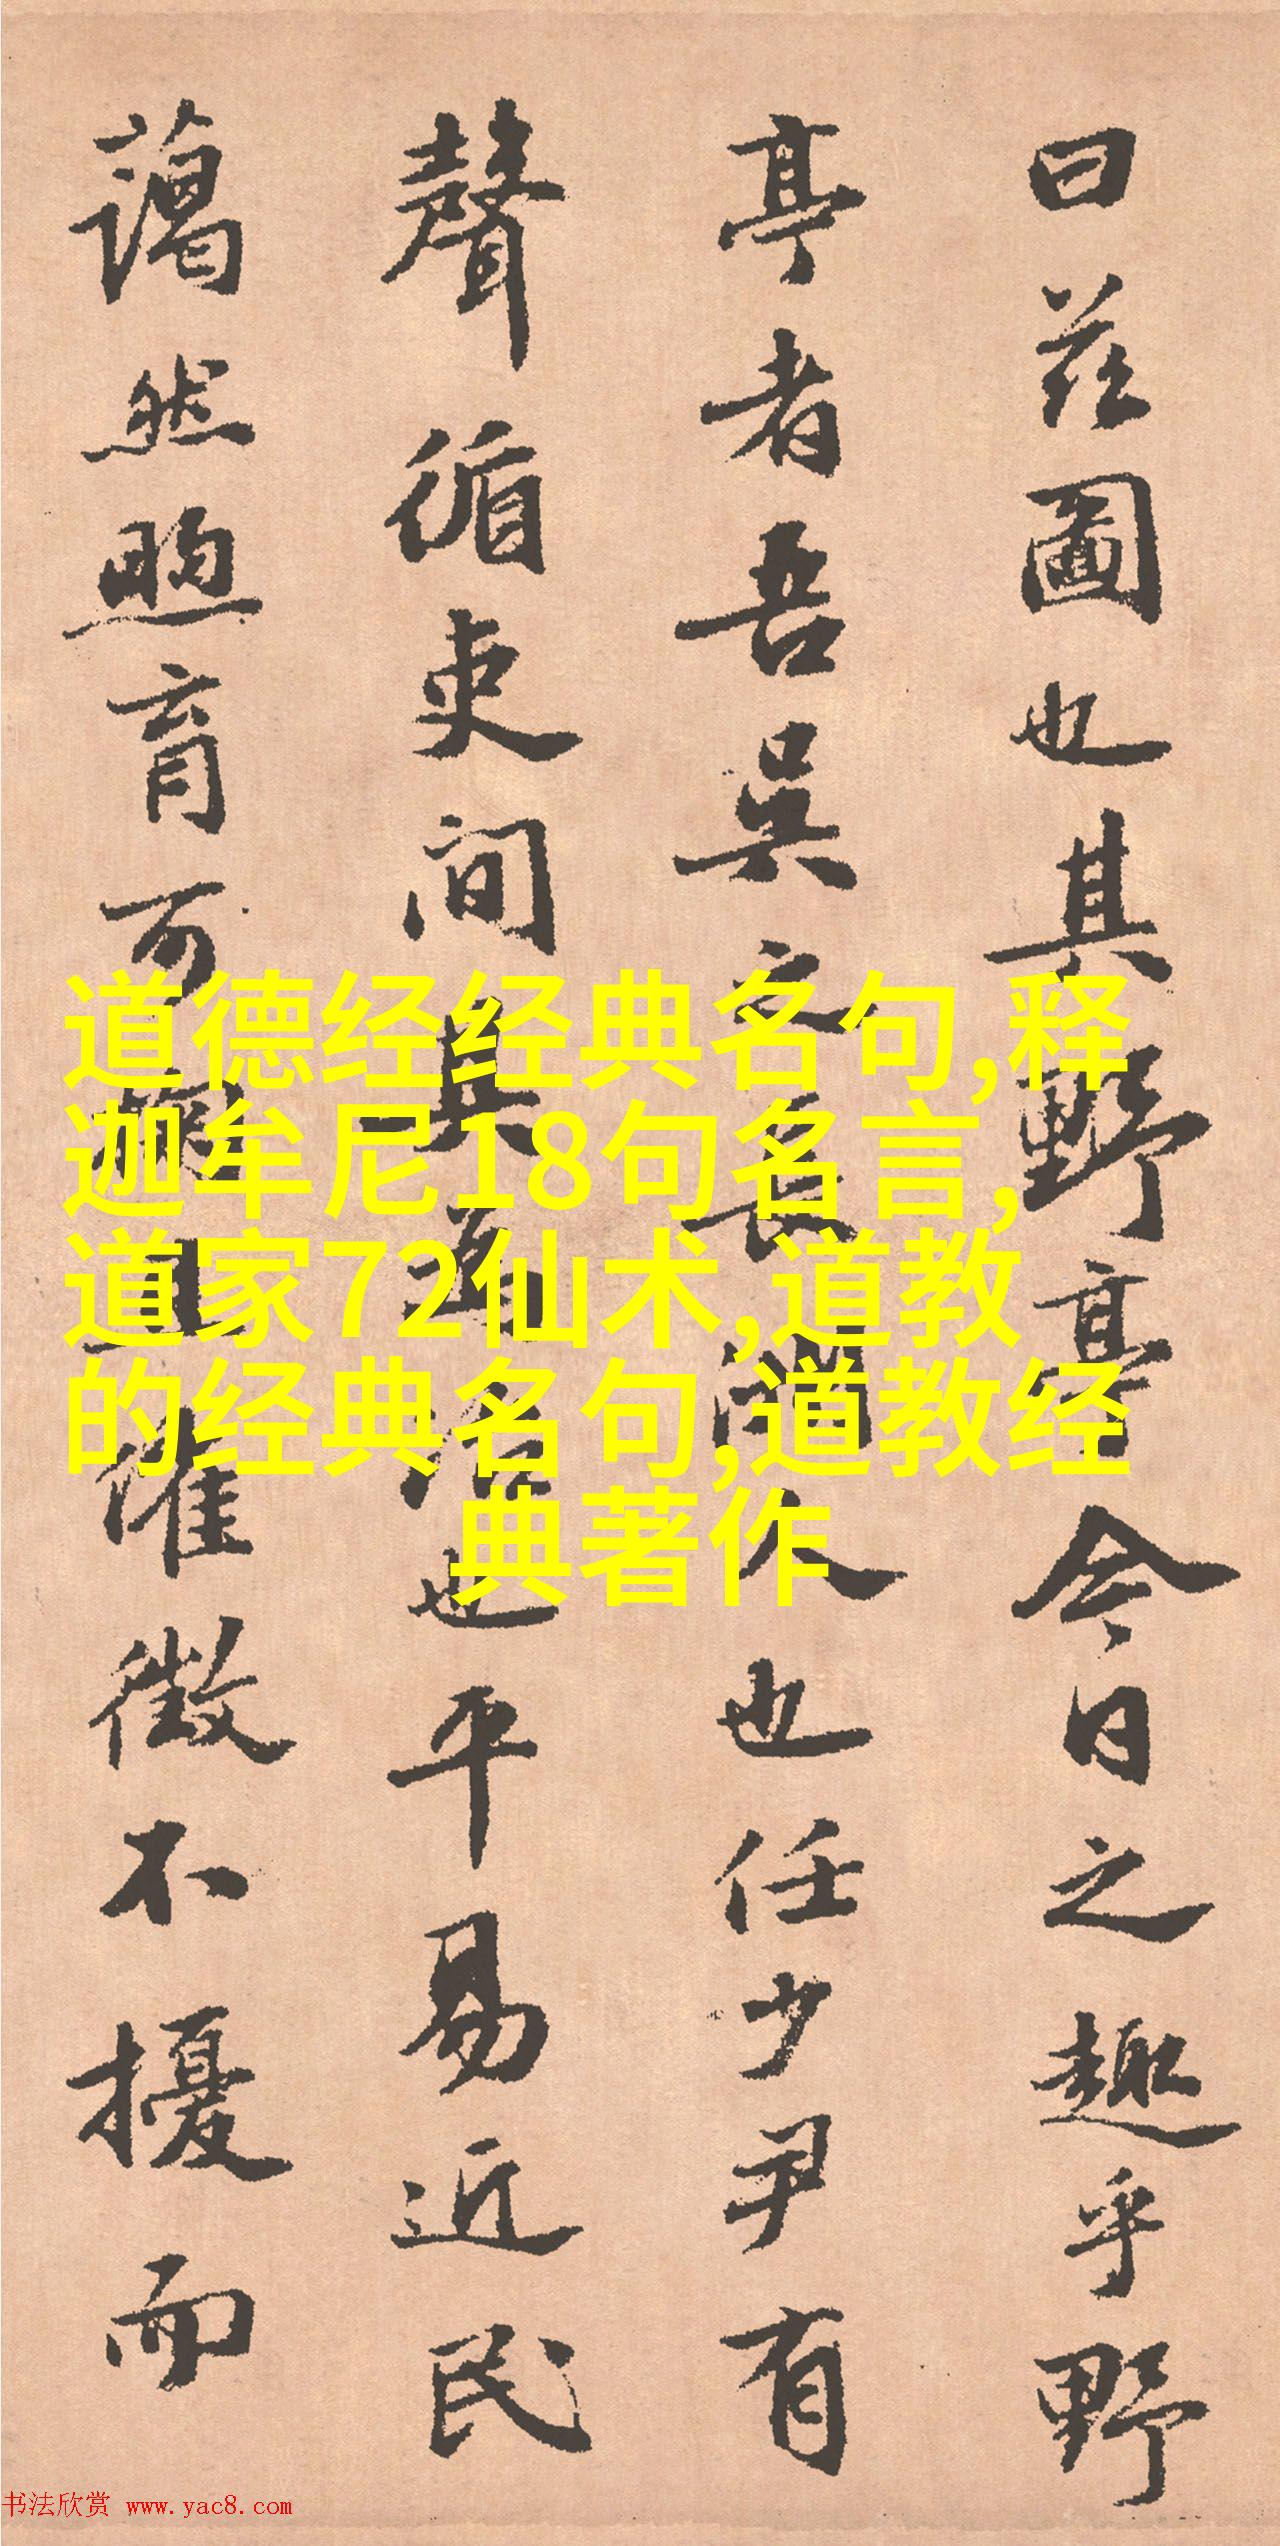 曰茲圖也其野亭今日之趣乎野
亭者吾吳之長洲人也任少尹有
聲循吏间其為治也平易近民
藹然煦育可且催徵不擾而
道德经经典名句,释
迦牟尼18句名言,
道家72仙术,道教
的经典名句,道教经
典著作
书法欣赏 www.yac8.com